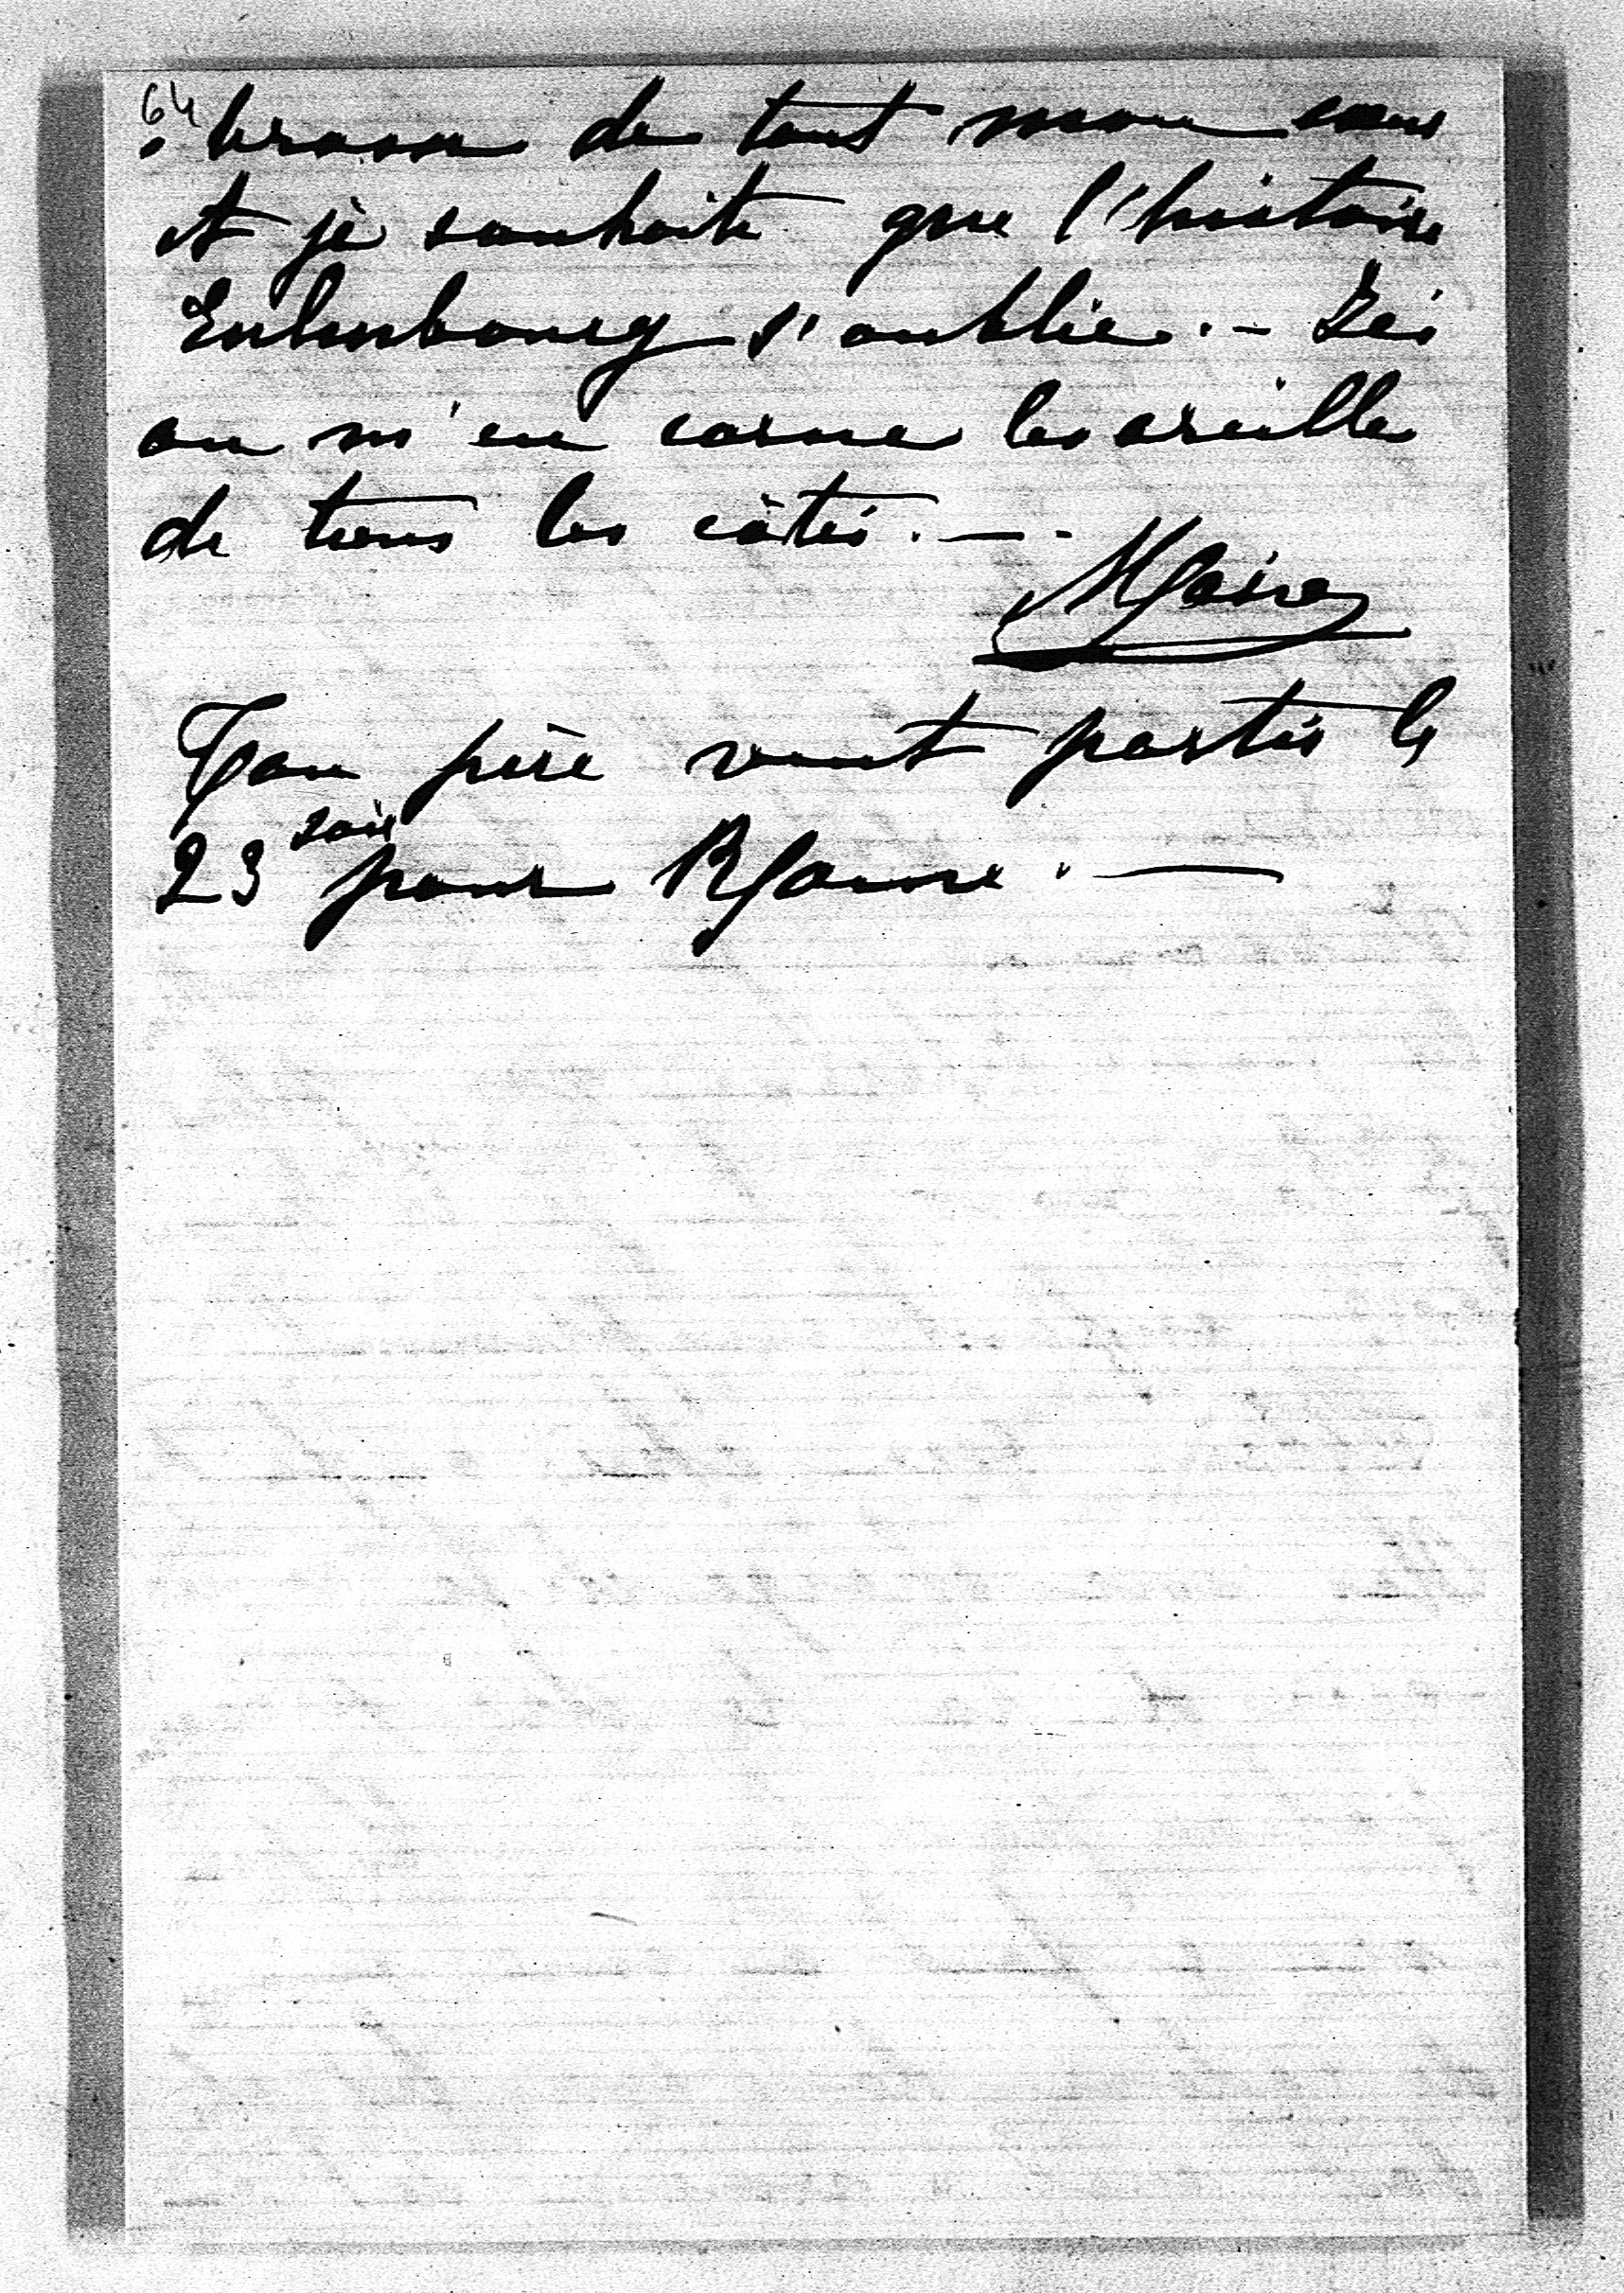 64
brasse de tout mon cœur
et je souhaite que l'histoire
Eulenbourg s'oublie. - Ici
on m'en corne les oreilles
de tous les côtés. - -
Ton père veut partir le
soir
23 pour Rome. -